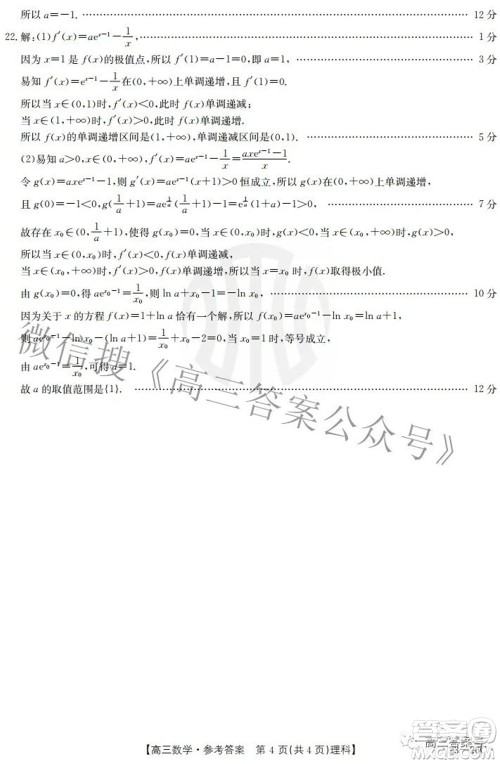 所以a=-1. 12分
22.解:(1)f′(x)=ae^{x-1}-1/x, 1分
因为x=1是f(x)的极值点,所以f′(1)=a-1=0,即a=1. 3分
易知f′(x)=e^{x-1}-1/x在(0,+∞)上单调递增,
所以当x∈(0,1)时,f′(x)<0,此时f(x)单调递减;
当x∈(1,+∞)时,f′(x)>0,此时f(x)单调递增.
所以f(x)的单调递增区间是(1,+∞),单调递减区间是(0,1). 5分
(2)易知a>0,x∈(0,+∞),f′(x)=ae^{x-1}-1/x=(axe^{x-1}-1)/x.
令g(x)=axe^{x-1}-1,则g′(x)=ae^{x-1}(x+1)>0恒成立,所以g(x)在(0,+∞)上单调递增,
7分
故存在x₀∈(0,+∞),使得g(x₀)=0,即f′(x₀)=0.
所以当x∈(0,x₀)时,f′(x)<0,f(x)单调递减,
当x∈(x₀,+∞)时,f′(x)>0,f(x)单调递增,所以当x=x₀时,f(x)取得极小值.
由g(x₀)=0,得ae^{x₀-1}=1/x₀,则ln a+x₀-1=-ln x₀. 10分
因为关于x的方程f(x)=1+ln a恰有一个解,所以f(x₀)=ae^{x₀-1}-ln x₀=1+ln a,
则ae^{x₀-1}-ln x₀-(ln a+1)=1/x₀+x₀-2=0,当x₀=1时,等号成立,
由ae^{x₀-1}=1/x₀,可得a=1.
故a的取值范围是{1}. 12分
微信搜《高三答案公众号》
【高三数学·参考答案 第4页(共4页)理科】